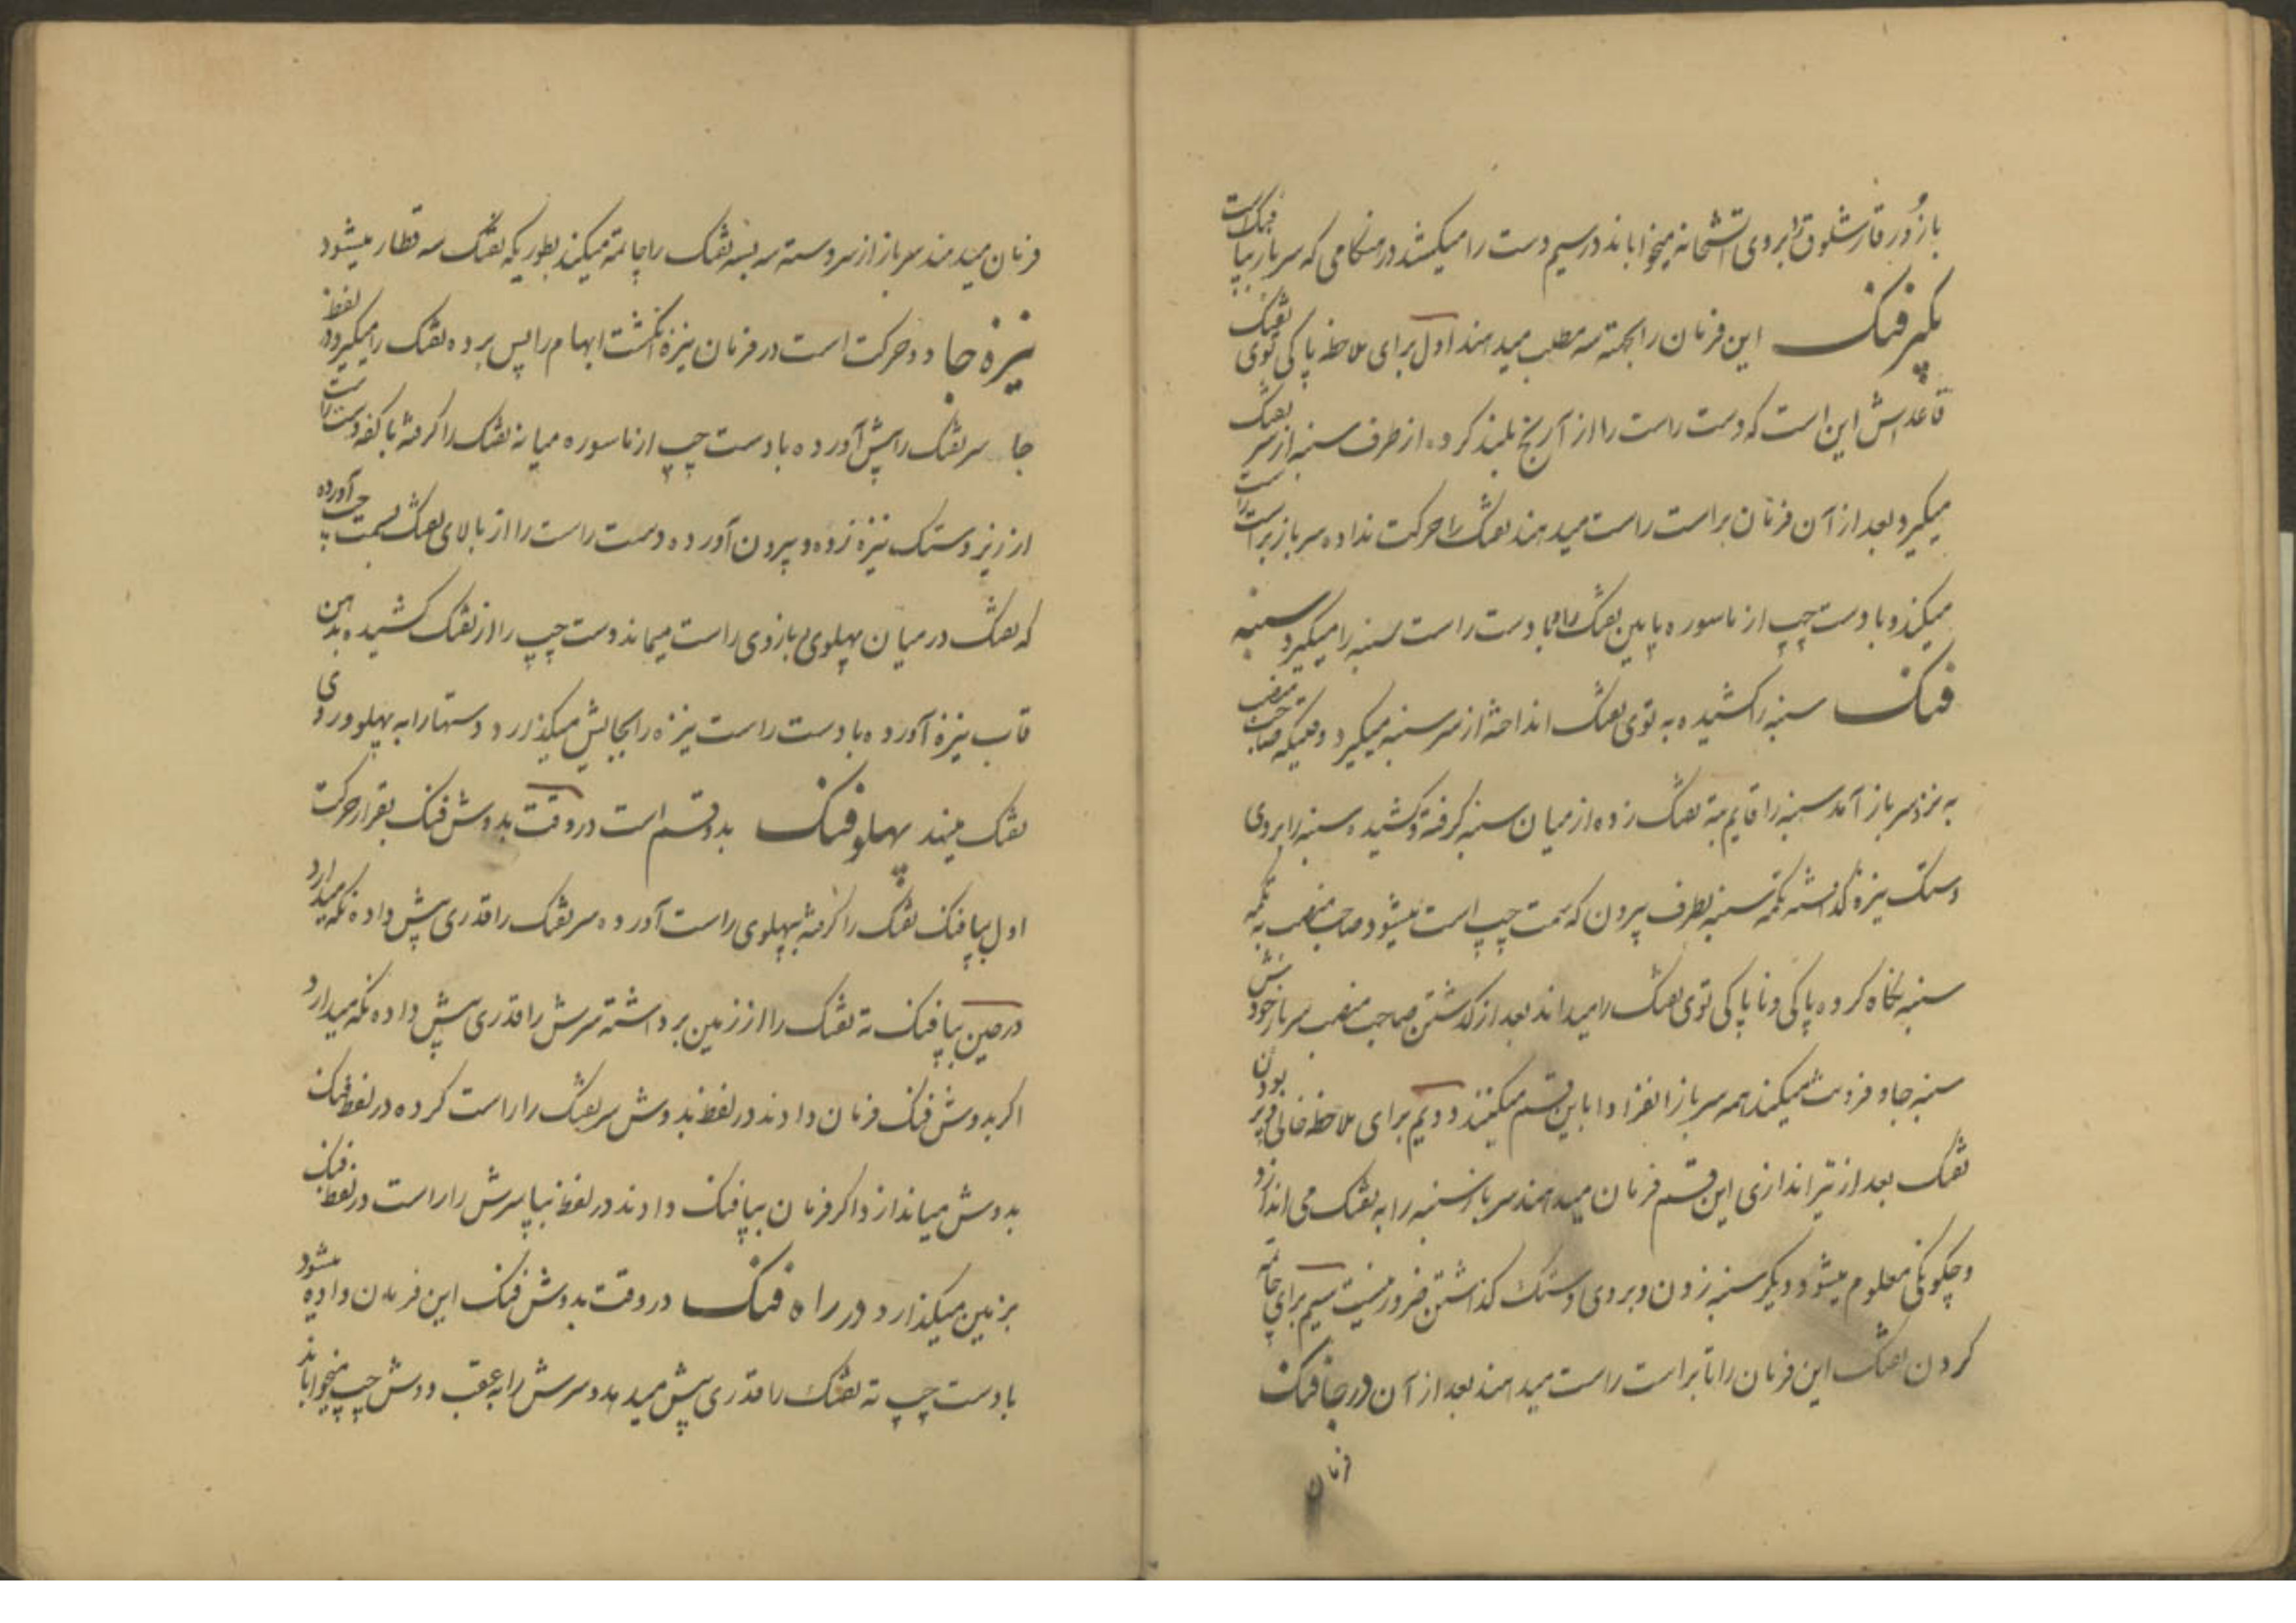 باز دُور قارشلوق را بروی آتشخانه میخواباند در سیم دست را میکشد در هنگامی که سرباز بپا فنک است
بگیر فنک این فرمان را بجهته سه مطلب میدهند اول برای ملاحظه پاکی توی تفنک
قاعده‌اش این است که دست راست را از آرنج بلند کرده از طرف سنبه از سر تفنک
میگیرد بعد از آن فرمان براست راست میدهند تفنک را حرکت نداده سرباز براست راست
میکند و با دست چپ از ناسوره پایین تفنک را و با دست راست سنبه را میگیرد سنبه
فنک سنبه را کشیده به توی تفنک انداخته از سر سنبه میگیرد وقتیکه صاحب منصب
به نزد سرباز آمد سنبه را قایم بته تفنک زده از میان سنبه گرفته و کشیده سنبه را بروی
دستک نیزه گذاشته تکمه سنبه بطرف بیرون که سمت چپ است میشود صاحب منصب به تکمه
سنبه نگاه کرده پاکی و ناپاکی توی تفنک را میداند بعد از گذشتن صاحب منصب سرباز خودش
سنبه جا و فرو دست میکند همه سرباز انفراداً باین قسم میکنند دویم برای ملاحظه خالی و پر بودن
تفنک بعد از تیراندازی این قسم فرمان میدهند سرباز سنبه را به تفنک می اندازد
و چگونگی معلوم میشود دیگر سنبه زدن و بروی دستک گذاشتن ضرور نیست سیم برای چاتمه
کردن تفنک این فرمان را تا براست راست میدهند بعد از آن در جا فنک
فرمان
فرمان میدهند سرباز از سر دسته سه بسه تفنک را چاتمه میکند بطوریکه تفنک سه قطار میشود
نیزه جا دو حرکت است در فرمان نیزه انگشت ابهام را پس برده تفنک را میگیرد در لفظ
جا سر تفنک را پیش آورده با دست چپ از ناسوره میانه تفنک را گرفته با کفه دست راست
از زیر دستک نیزه زده و بیرون آورده دست راست را از بالای تفنک بسمت چپ آورده
که تفنک در میان پهلوی بازوی راست میماند دست چپ را از تفنک کشیده بدهن
قاب نیزه آورده با دست راست نیزه را بجایش میگذارد و دستها را به پهلو و روی
تفنک میند پهلو فنک بدو قسم است در وقت بدوش فنک بقرار حرکت
اول بپا فنک تفنک را گرفته بپهلوی راست آورده سر تفنک را قدری پیش داده نگه میدارد
در حین بپا فنک ته تفنک را از زمین برداشته سرش را قدری پیش داده نگه میدارد
اگر بدوش فنک فرمان دادند در لفظ بدوش سر تفنک را راست کرده در لفظ فنک
بدوش میاندازد اگر فرمان بپا فنک دادند در لفظ بپا سرش را راست در لفظ فنک
بزمین میگذارد در راه فنک در وقت بدوش فنک این فرمان داده میشود
با دست چپ ته تفنک را قدری پیش میدهد و سرش را به عقب دوش چپ میخواباند